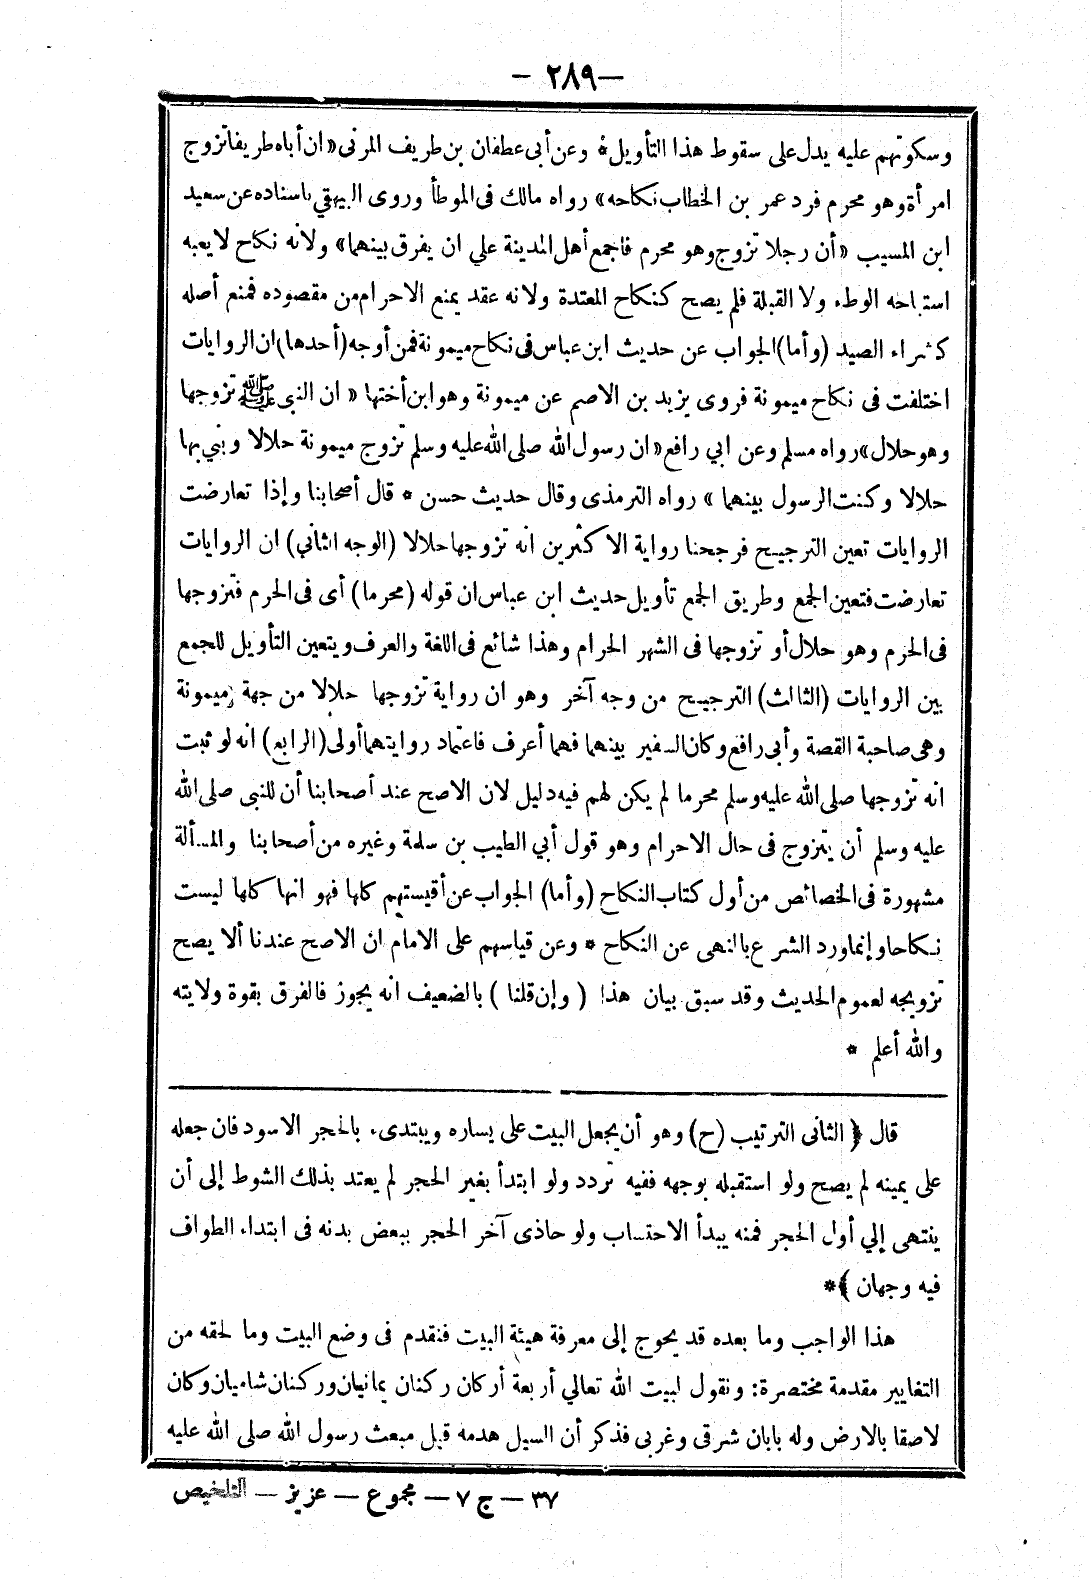 — ٢٨٩ —
وسكوتهم عليه يدل على سقوط هذا التأويل * وعن أبى عطفان بن طريف المرنى «ان أباه طريفا تزوج
امرأة وهو محرم فرد عمر بن الخطاب نكاحه» رواه مالك فى الموطأ وروى البيهقي باسناده عن سعيد
ابن المسيب «أن رجلا تزوج وهو محرم فاجمع أهل المدينة علي ان يفرق بينهما» ولانه نكاح لا يعبه
استباحه الوطء ولا القبلة فلم يصح كنكاح المعتدة ولانه عقد يمنع الاحرام من مقصوده فمنع أصله
كشراء الصيد (وأما) الجواب عن حديث ابن عباس فى نكاح ميمونة فمن أوجه (أحدها) ان الروايات
اختلفت فى نكاح ميمونة فروى يزيد بن الاصم عن ميمونة وهو ابن أختها «ان النبى ﷺ تزوجها
وهو حلال» رواه مسلم وعن ابي رافع «ان رسول الله صلى الله عليه وسلم تزوج ميمونة حلالا وبني بها
حلالا وكنت الرسول بينهما» رواه الترمذى وقال حديث حسن * قال أصحابنا وإذا تعارضت
الروايات تعين الترجيح فرجحنا رواية الاكثرين انه تزوجها حلالا (الوجه الثاني) ان الروايات
تعارضت فتعين الجمع وطريق الجمع تأويل حديث ابن عباس ان قوله (محرما) أى فى الحرم فتزوجها
فى الحرم وهو حلال أو تزوجها فى الشهر الحرام وهذا شائع فى اللغة والعرف ويتعين التأويل للجمع
بين الروايات (الثالث) الترجيح من وجه آخر وهو ان رواية تزوجها حلالا من جهة ميمونة
وهى صاحبة القصة وأبى رافع وكان السفير بينهما فهما أعرف فاعتماد روايتهما أولى (الرابع) انه لو ثبت
انه تزوجها صلى الله عليه وسلم محرما لم يكن لهم فيه دليل لان الاصح عند أصحابنا أن للنبى صلى الله
عليه وسلم أن يتزوج فى حال الاحرام وهو قول أبي الطيب بن سلمة وغيره من أصحابنا والمسألة
مشهورة فى الخصائص من أول كتاب النكاح (وأما) الجواب عن أقيستهم كلها فهو انها كلها ليست
نكاحا وإنما ورد الشرع بالنهى عن النكاح * وعن قياسهم على الامام ان الاصح عندنا ألا يصح
تزويجه لعموم الحديث وقد سبق بيان هذا (وإن قلنا) بالضعيف انه يجوز فالفرق بقوة ولايته
والله أعلم *
قال ﴿الثانى الترتيب (ح) وهو أن يجعل البيت على يساره ويبتدىء بالحجر الاسود فان جعله
على يمينه لم يصح ولو استقبله بوجهه ففيه تردد ولو ابتدأ بغير الحجر لم يعتد بذلك الشوط إلى أن
ينتهى إلي أول الحجر فمنه يبدأ الاحتساب ولو حاذى آخر الحجر ببعض بدنه فى ابتداء الطواف
فيه وجهان﴾ *
هذا الواجب وما بعده قد يحوج إلى معرفة هيئة البيت فنقدم فى وضع البيت وما لحقه من
التغايير مقدمة مختصرة: ونقول لبيت الله تعالي أربعة أركان ركنان يمانيان وركنان شاميان وكان
لاصقا بالارض وله بابان شرقى وغربى فذكر أن السيل هدمه قبل مبعث رسول الله صلى الله عليه
٣٧ — ج ٧ — مجموع — عزيز — التلخيص